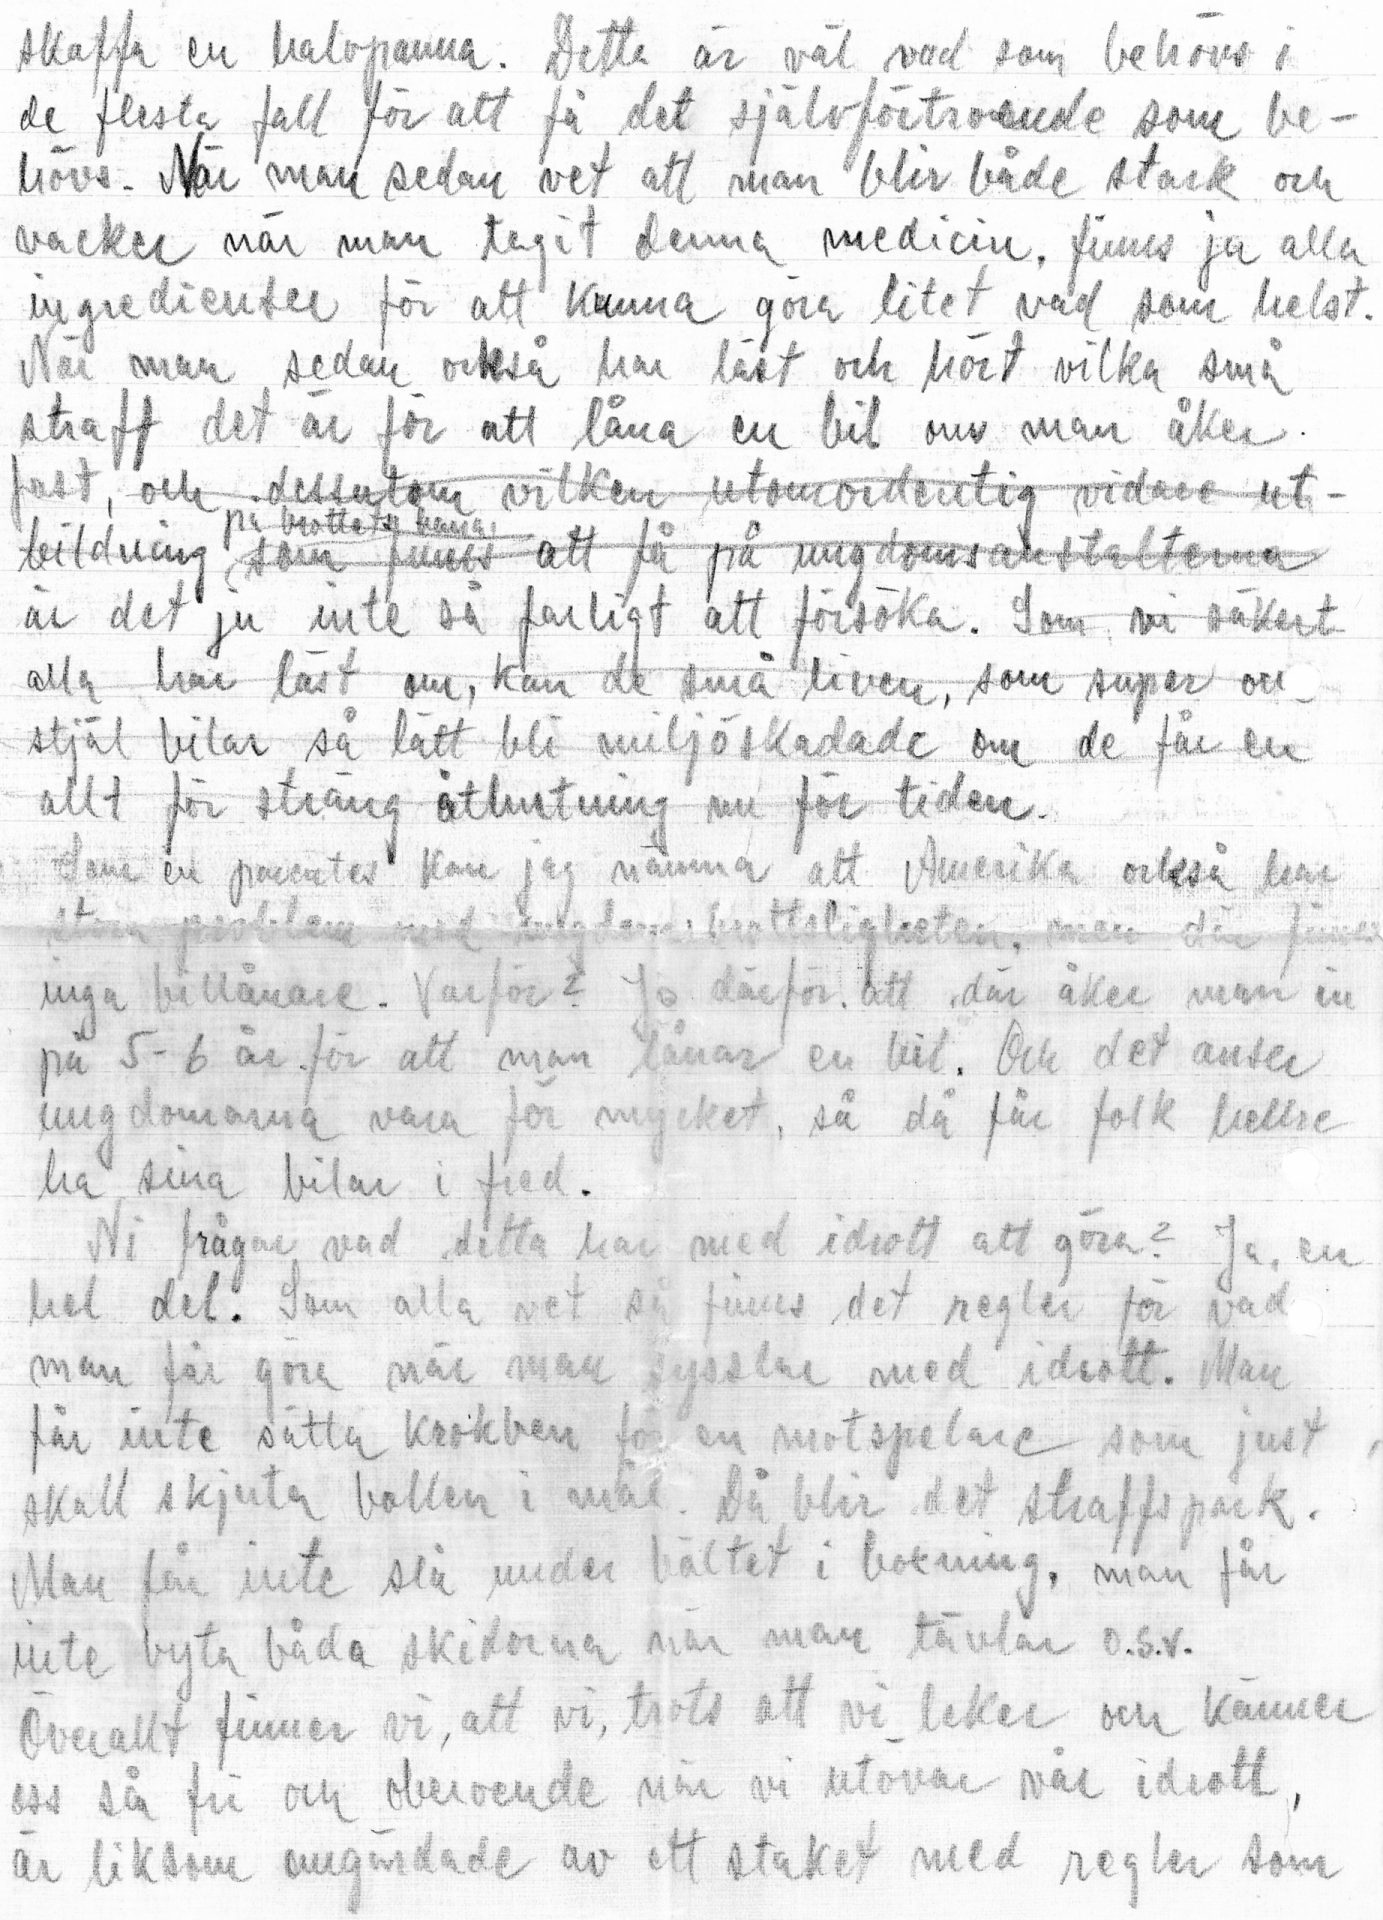 skaffa en halvpanna. Detta är väl vad som behövs i
de flesta fall för att få det självförtroende som be-
hövs. När man sedan vet att man blir både stark och
vacker när man tagit denna medicin, finns ja alla
ingredienser för att kunna göra litet vad som helst.
När man sedan också har läst och hört vilka små
straff det är för att låna en bil om man åker
fast, och dessutom vilken utomordentlig vidare ut-
på brottets bana
bildning som finns att få på ungdomsanstalterna
är det ju inte så farligt att försöka. Som vi säkert
alla har läst om, kan de små liven, som super och
stjäl bilar så lätt bli miljöskadade om de får en
allt för sträng åthutning nu för tiden.
Som en parentes kan jag nämna att Amerika också har
stora problem med ungdomsbrottsligheten, men där finns
inga billånare. Varför? Jo därför att där åker man in
på 5-6 år för att man lånar en bil. Och det anser
ungdomarna vara för mycket, så då får folk hellre
ha sina bilar i fred.
Ni frågar vad detta har med idrott att göra? Ja, en
hel del. Som alla vet så finns det regler för vad
man får göra när man sysslar med idrott. Man
får inte sätta krokben för en motspelare som just
skall skjuta bollen i mål. Då blir det straffspark.
Man får inte slå under bältet i boxning, man får
inte byta båda skidorna när man tävlar o.s.v.
Överallt finner vi, att vi, trots att vi leker och känner
oss så fri och oberoende när vi utövar vår idrott,
är liksom omgärdade av ett staket med regler som